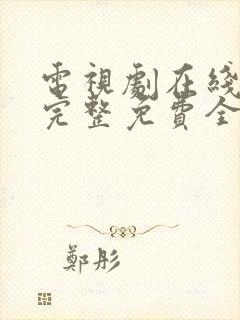 電視劇在綫
完整免費全
鄭彤